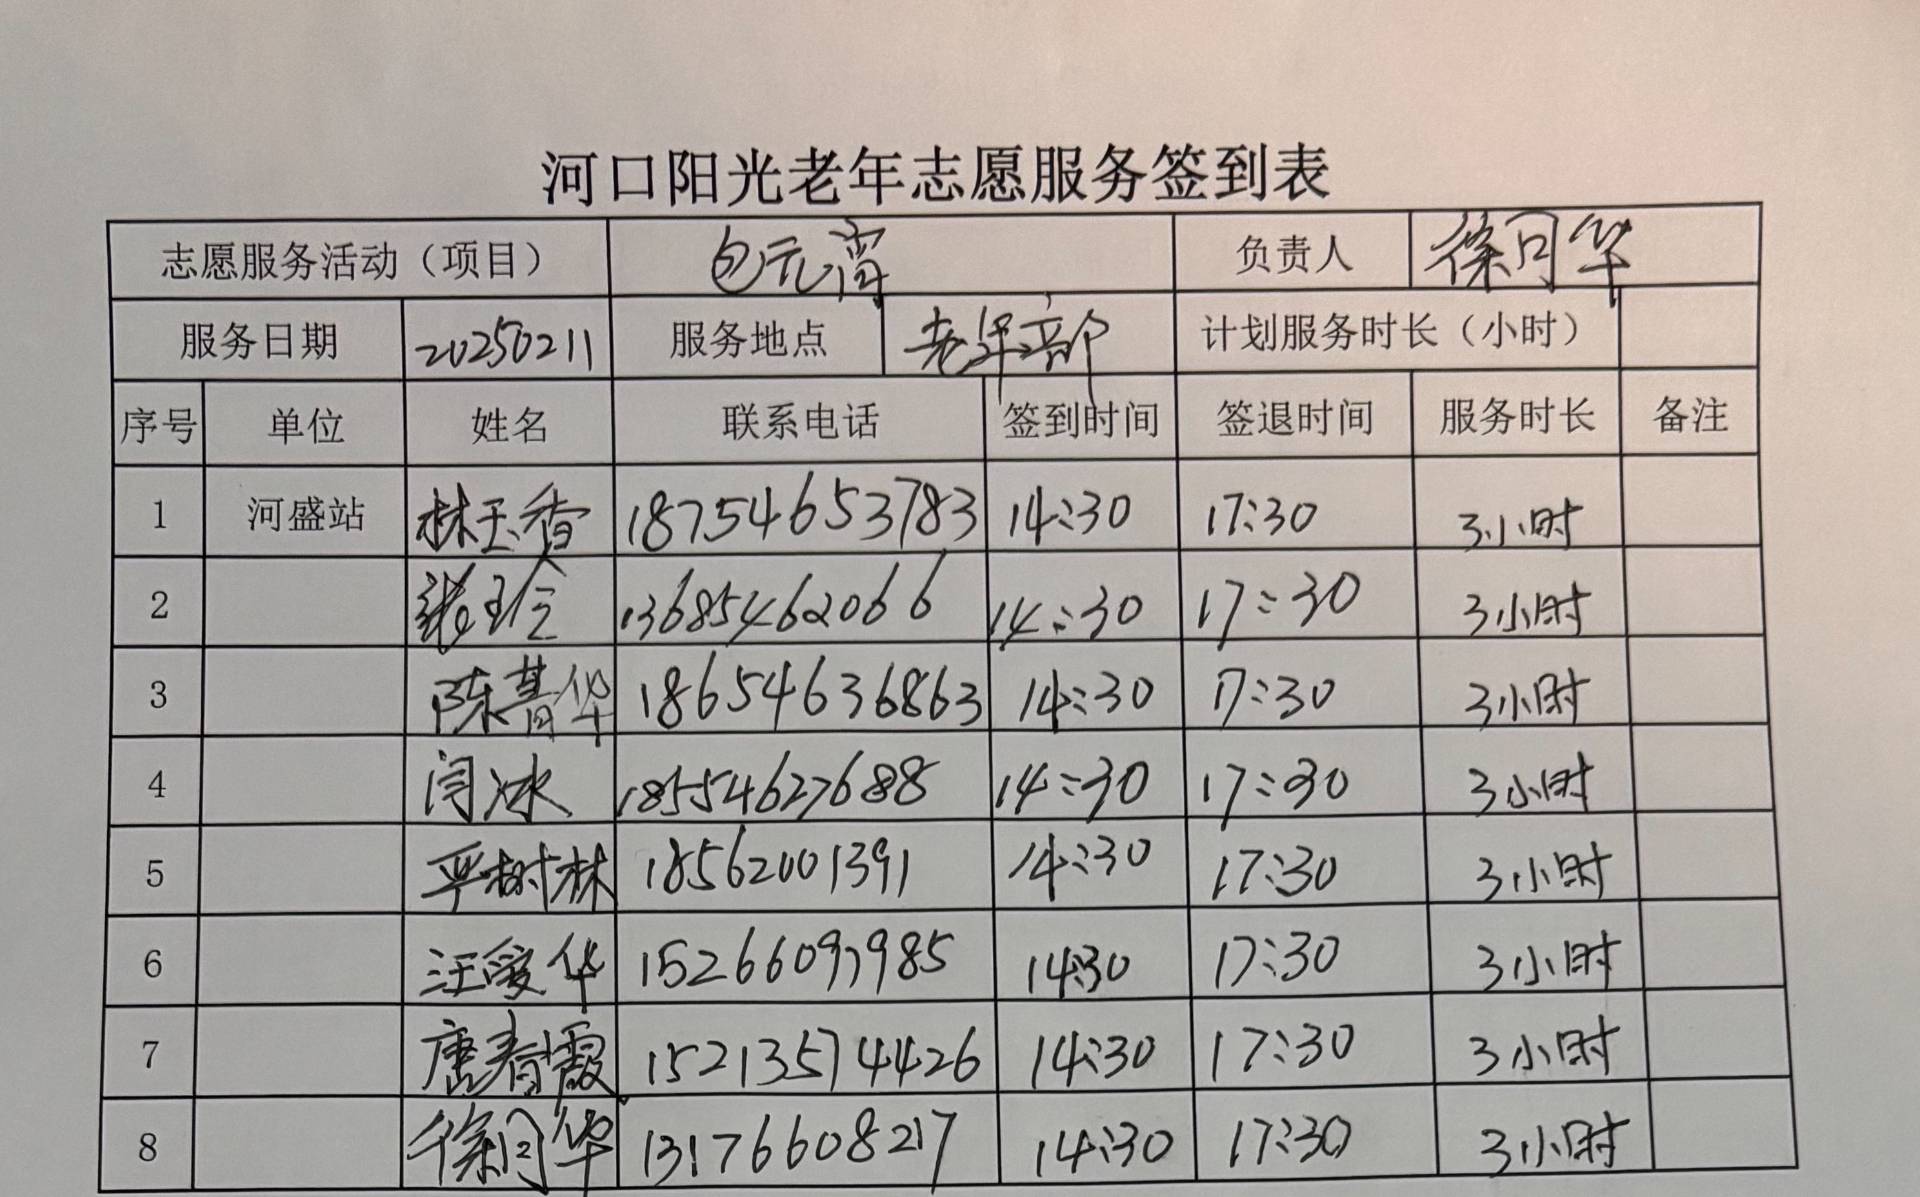 河口阳光老年志愿服务签到表
志愿服务活动（项目） 包元宵 负责人 徐同华
服务日期 20250211 服务地点 老年部 计划服务时长（小时）
序号 单位 姓名 联系电话 签到时间 签退时间 服务时长 备注
1 河盛站 林玉香 18754653783 14:30 17:30 3小时
2 张玲 13685462066 14:30 17:30 3小时
3 陈菁华 18654636863 14:30 17:30 3小时
4 闫冰 18554627688 14:30 17:30 3小时
5 严树林 18562001391 14:30 17:30 3小时
6 汪爱华 15266097985 14:30 17:30 3小时
7 唐春霞 15213574426 14:30 17:30 3小时
8 徐同华 13176608217 14:30 17:30 3小时